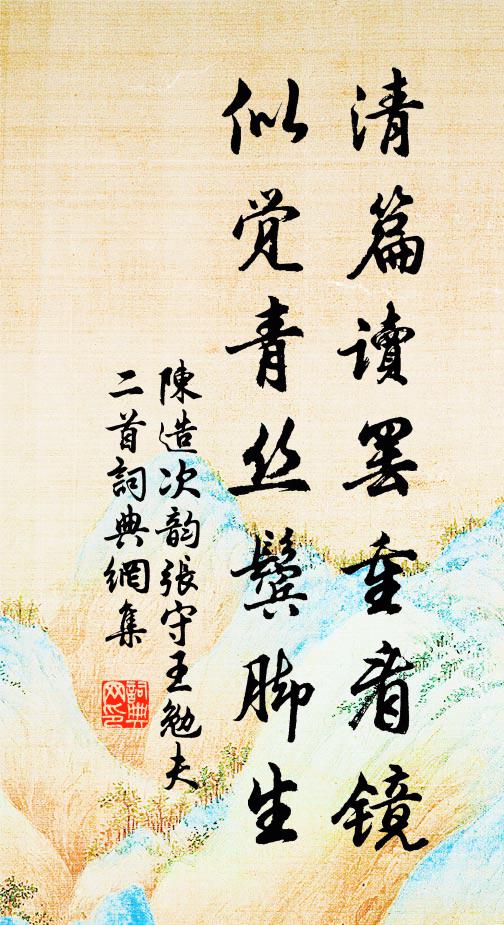 清篇读罢重看镜
似觉青丝鬓脚生
陳造次韵張守王勉夫
二首詞典網集
詞典
网印